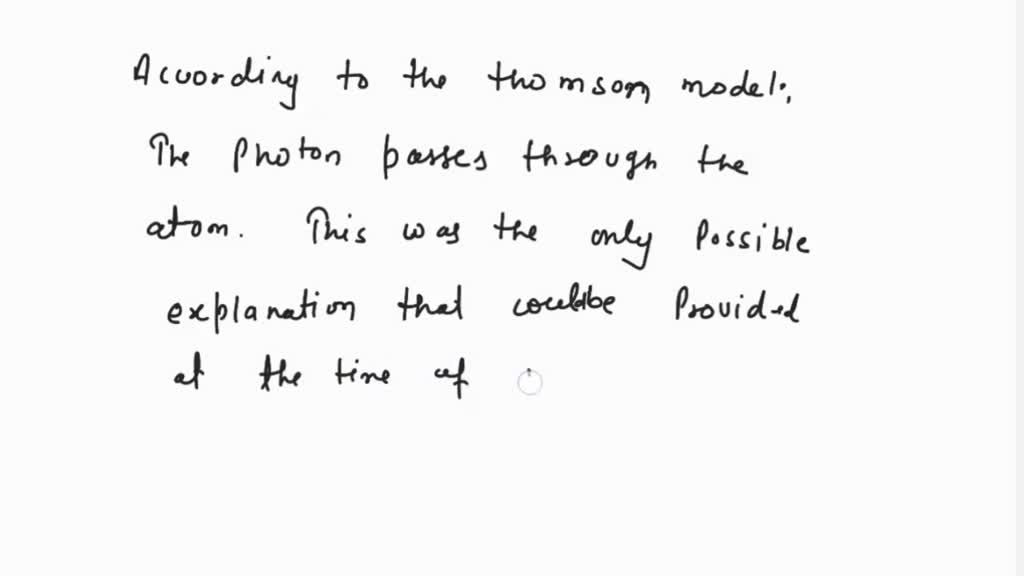 According to the thomson model:,
The Photon passes through the
atom. This was the only Possible
explanation that couldbe Provided
at the time of